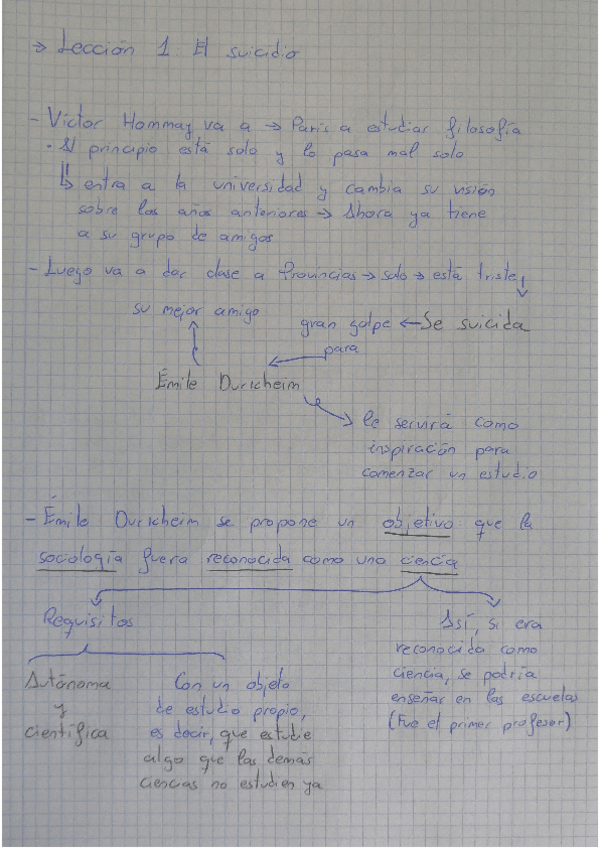 → Lección 1: El suicidio
- Victor Hommay va a → París a estudiar filosofía
• Al principio está solo y lo pasa mal solo
↳ entra a la universidad y cambia su visión
sobre los años anteriores → Ahora ya tiene
a su grupo de amigos
- Luego va a dar clase a Provincias → solo → está triste
su mejor amigo
gran golpe ← Se suicida
para
Émile Durkheim
le servirá como
inspiración para
comenzar un estudio
- Émile Durkheim se propone un objetivo que la
sociología fuera reconocida como una ciencia
Requisitos
Autónoma
y
científica
Con un objeto
de estudio propio,
es decir, que estudie
algo que las demás
ciencias no estudien ya
Así, si era
reconocida como
ciencia, se podría
enseñar en las escuelas
(Fue el primer profesor)